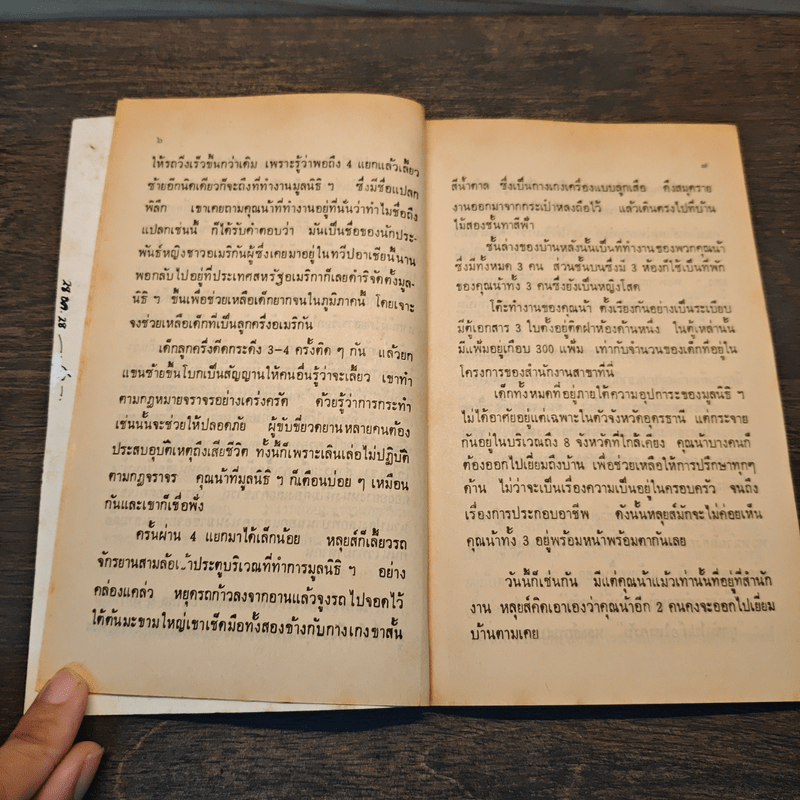 ๖
ให้รถวิ่งเร็วขึ้นกว่าเดิม เพราะรู้ว่าพอถึง 4 แยกแล้วเลี้ยว
ซ้ายอีกนิดเดียวก็จะถึงที่ทำงานมูลนิธิ ฯ ซึ่งมีชื่อแปลก
พิลึก เขาเคยถามคุณน้าที่ทำงานอยู่ที่นั่นว่าทำไมชื่อถึง
แปลกเช่นนี้ ก็ได้รับคำตอบว่า มันเป็นชื่อของนักประ-
พันธ์หญิงชาวอเมริกันผู้ซึ่งเคยมาอยู่ในทวีปอาเชียนี้นาน
พอกลับไปอยู่ที่ประเทศสหรัฐอเมริกาก็เลยดำริจัดตั้งมูล-
นิธิ ฯ ขึ้นเพื่อช่วยเหลือเด็กยากจนในภูมิภาคนี้ โดยเจาะ
จงช่วยเหลือเด็กที่เป็นลูกครึ่งอเมริกัน
เด็กลูกครึ่งดีดกระดิ่ง 3-4 ครั้งติด ๆ กัน แล้วยก
แขนซ้ายขึ้นโบกเป็นสัญญานให้คนอื่นรู้ว่าจะเลี้ยว เขาทำ
ตามกฎหมายจราจรอย่างเคร่งครัด ด้วยรู้ว่าการกระทำ
เช่นนั้นจะช่วยให้ปลอดภัย ผู้ขับขี่ยวดยานหลายคนต้อง
ประสบอุบัติเหตุถึงเสียชีวิต ทั้งนี้ก็เพราะเลินเล่อไม่ปฏิบัติ
ตามกฎจราจร คุณน้าที่มูลนิธิ ฯ ก็เตือนบ่อย ๆ เหมือน
กันและเขาก็เชื่อฟัง
ครั้นผ่าน 4 แยกมาได้เล็กน้อย หลุยส์ก็เลี้ยวรถ
จักรยานสามล้อเข้าประตูบริเวณที่ทำการมูลนิธิ ฯ อย่าง
คล่องแคล่ว หยุดรถก้าวลงจากอานแล้วจูงรถไปจอดไว้
ใต้ต้นมะขามใหญ่เขาเช็ดมือทั้งสองข้างกับกางเกงขาสั้น
๗
สีน้ำตาล ซึ่งเป็นกางเกงเครื่องแบบลูกเสือ ดึงสมุดราย
งานออกมาจากกระเป๋าหลังถือไว้ แล้วเดินตรงไปที่บ้าน
ไม้สองชั้นทาสีฟ้า
ชั้นล่างของบ้านหลังนั้นเป็นที่ทำงานของพวกคุณน้า
ซึ่งมีทั้งหมด 3 คน ส่วนชั้นบนซึ่งมี 3 ห้องก็ใช้เป็นที่พัก
ของคุณน้าทั้ง 3 คนซึ่งยังเป็นหญิงโสด
โต๊ะทำงานของคุณน้า ตั้งเรียงกันอย่างเป็นระเบียบ
มีตู้เอกสาร 3 ใบตั้งอยู่ติดฝาห้องด้านหนึ่ง ในตู้เหล่านั้น
มีแฟ้มอยู่เกือบ 300 แฟ้ม เท่ากับจำนวนของเด็กที่อยู่ใน
โครงการของสำนักงานสาขาที่นี่
เด็กทั้งหมดที่อยู่ภายใต้ความอุปการะของมูลนิธิ ฯ
ไม่ได้อาศัยอยู่แต่เฉพาะในตัวจังหวัดอุดรธานี แต่กระจาย
กันอยู่ในบริเวณถึง 8 จังหวัดที่ใกล้เคียง คุณน้าบางคนก็
ต้องออกไปเยี่ยมถึงบ้าน เพื่อช่วยเหลือให้การปรึกษาทุกๆ
ด้าน ไม่ว่าจะเป็นเรื่องความเป็นอยู่ในครอบครัว จนถึง
เรื่องการประกอบอาชีพ ดังนั้นหลุยส์มักจะไม่ค่อยเห็น
คุณน้าทั้ง 3 อยู่พร้อมหน้าพร้อมตากันเลย
วันนี้ก็เช่นกัน มีแต่คุณน้าแม้วเท่านั้นที่อยู่ที่สำนัก
งาน หลุยส์คิดเอาเองว่าคุณน้าอีก 2 คนคงจะออกไปเยี่ยม
บ้านตามเคย